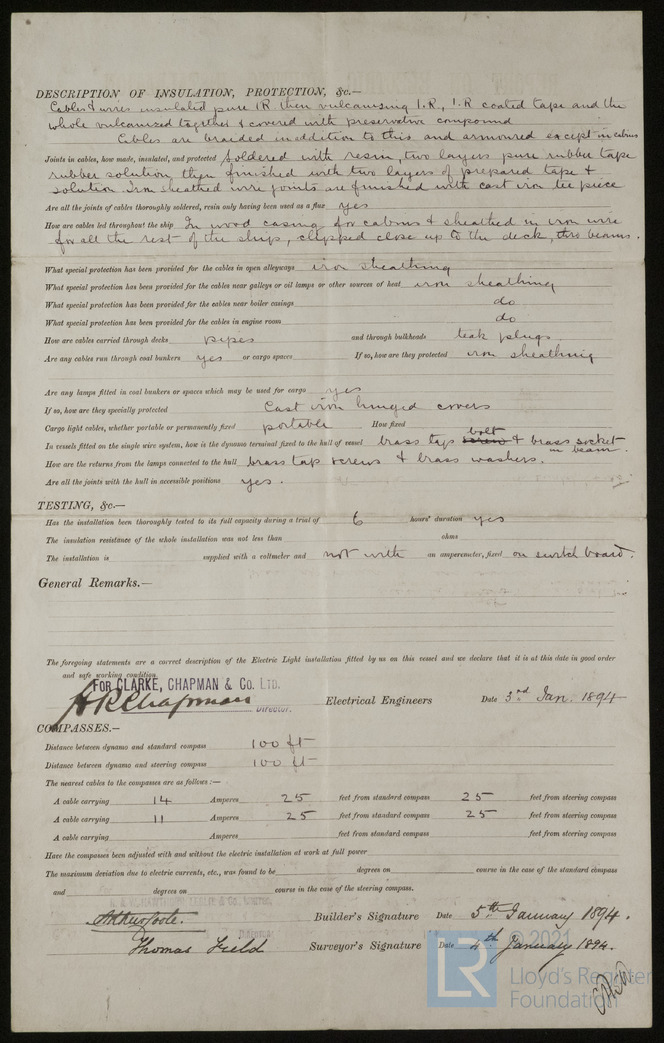 DESCRIPTION OF INSULATION, PROTECTION, &c.—
Cables & wires insulated pure IR then vulcanising I.R, I.R coated tape and the
whole vulcanized together & covered with preservative compound
Cables are braided in addition to this and armoured except in cabins
Joints in cables, how made, insulated, and protected Soldered with resin, two layers pure rubber tape
rubber solution, then finished with two layers of prepared tape &
solution. Iron sheathed wire joints are finished with cast iron tee piece
Are all the joints of cables thoroughly soldered, resin only having been used as a flux yes
How are cables led throughout the ship In wood casing for cabins & sheathed in iron wire
for all the rest of the ships, clipped close up to the deck, thro beams.
What special protection has been provided for the cables in open alleyways iron sheathing
What special protection has been provided for the cables near galleys or oil lamps or other sources of heat iron sheathing
What special protection has been provided for the cables near boiler casings do
What special protection has been provided for the cables in engine room do
How are cables carried through decks pipes and through bulkheads teak plugs
Are any cables run through coal bunkers yes or cargo spaces If so, how are they protected iron sheathing
Are any lamps fitted in coal bunkers or spaces which may be used for cargo yes
If so, how are they specially protected Cast iron hinged covers
Cargo light cables, whether portable or permanently fixed portable How fixed
bolt
In vessels fitted on the single wire system, how is the dynamo terminal fixed to the hull of vessel brass tap screw & brass socket
in beam.
How are the returns from the lamps connected to the hull brass tap screws & brass washers.
Are all the joints with the hull in accessible positions yes.
TESTING, &c.—
Has the installation been thoroughly tested to its full capacity during a trial of 6 hours' duration yes
The insulation resistance of the whole installation was not less than ohms
The installation is supplied with a voltmeter and not with an amperemeter, fixed on switch board.
General Remarks.—
The foregoing statements are a correct description of the Electric Light installation fitted by us on this vessel and we declare that it is at this date in good order
and safe working condition
FOR CLARKE, CHAPMAN & Co. LTD.
Chapman Director. Electrical Engineers Date 3rd Jan. 1894
COMPASSES.—
Distance between dynamo and standard compass 100 ft
Distance between dynamo and steering compass 100 ft
The nearest cables to the compasses are as follows:—
A cable carrying 14 Amperes 25 feet from standard compass 25 feet from steering compass
A cable carrying 11 Amperes 25 feet from standard compass 25 feet from steering compass
A cable carrying Amperes feet from standard compass feet from steering compass
Have the compasses been adjusted with and without the electric installation at work at full power
The maximum deviation due to electric currents, etc., was found to be degrees on course in the case of the standard compass
and degrees on course in the case of the steering compass.
Builder's Signature Date 5th January 1894.
Thomas Field Surveyor's Signature Date 4th January 1894.
LR © 2021
Lloyd's Register
Foundation